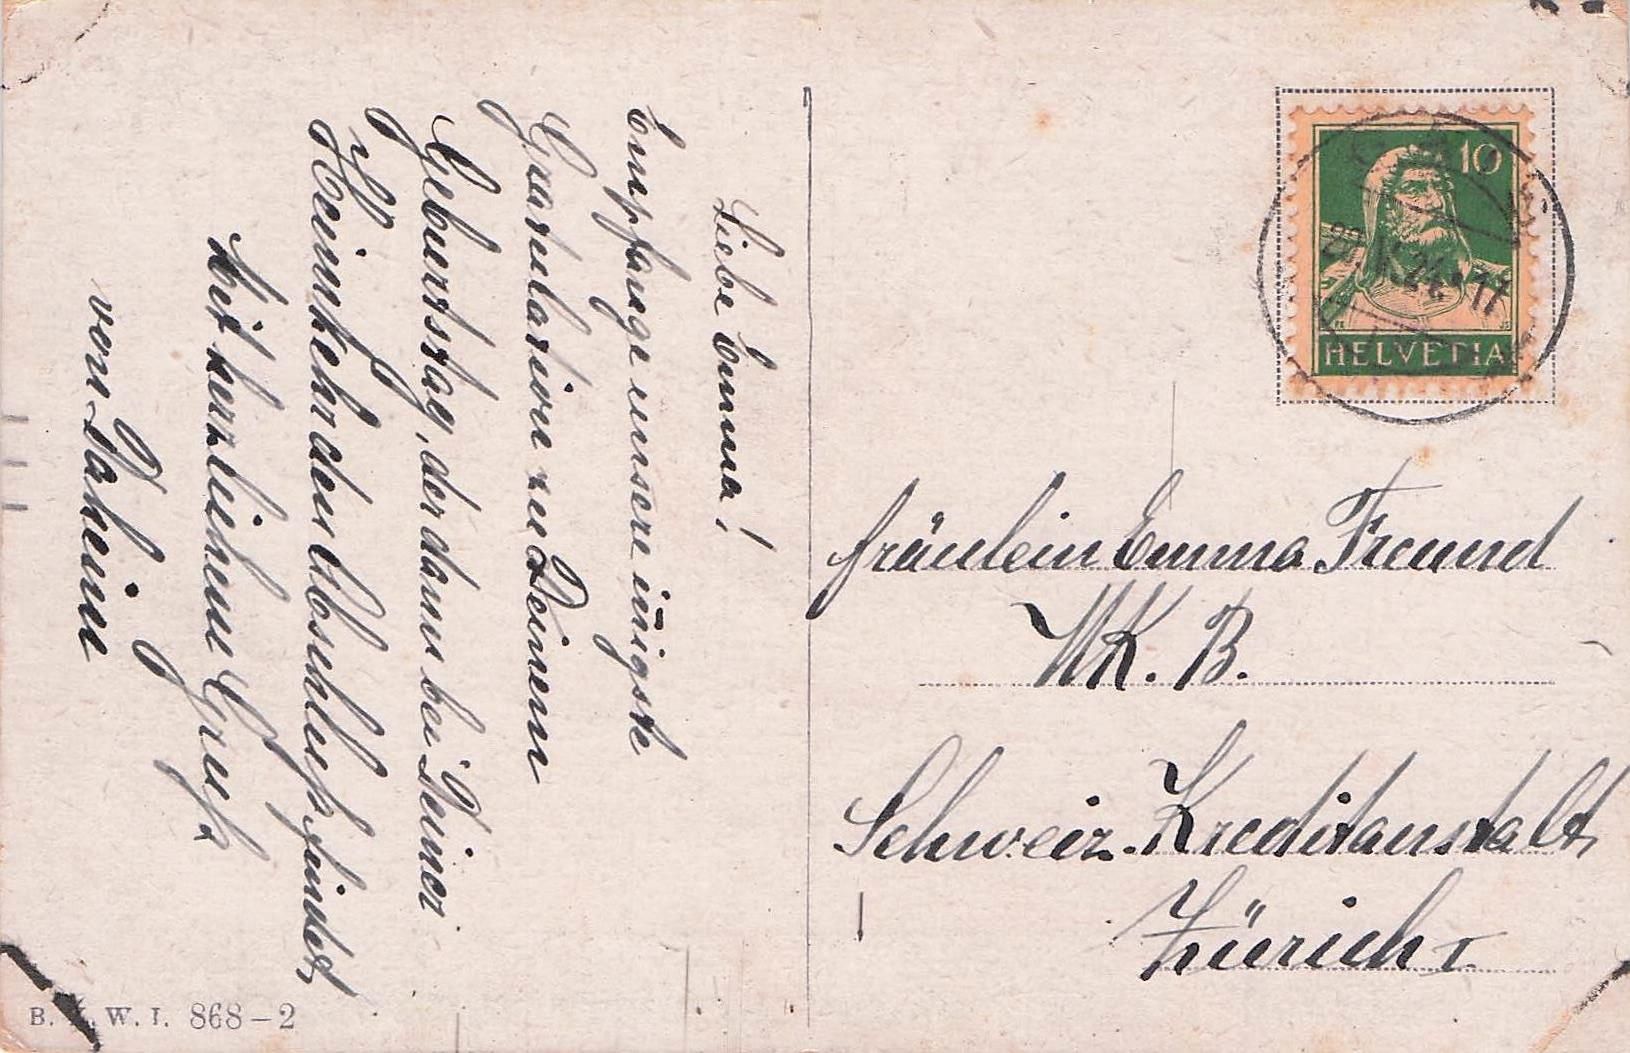 Liebe Emma!
Empfange unsere iñigste
Gratulation zu Deinem
Geburtstag, der dann bei Deiner
Heimkehr den Abschluss findet,
Mit herzlichem Gruss
von Daheim
10
24.-17
HELVETIA
Fräulein Emma Freund
K. B.
Schweiz. Kreditanstalt,
Zürich I
B. K. W. I. 868-2